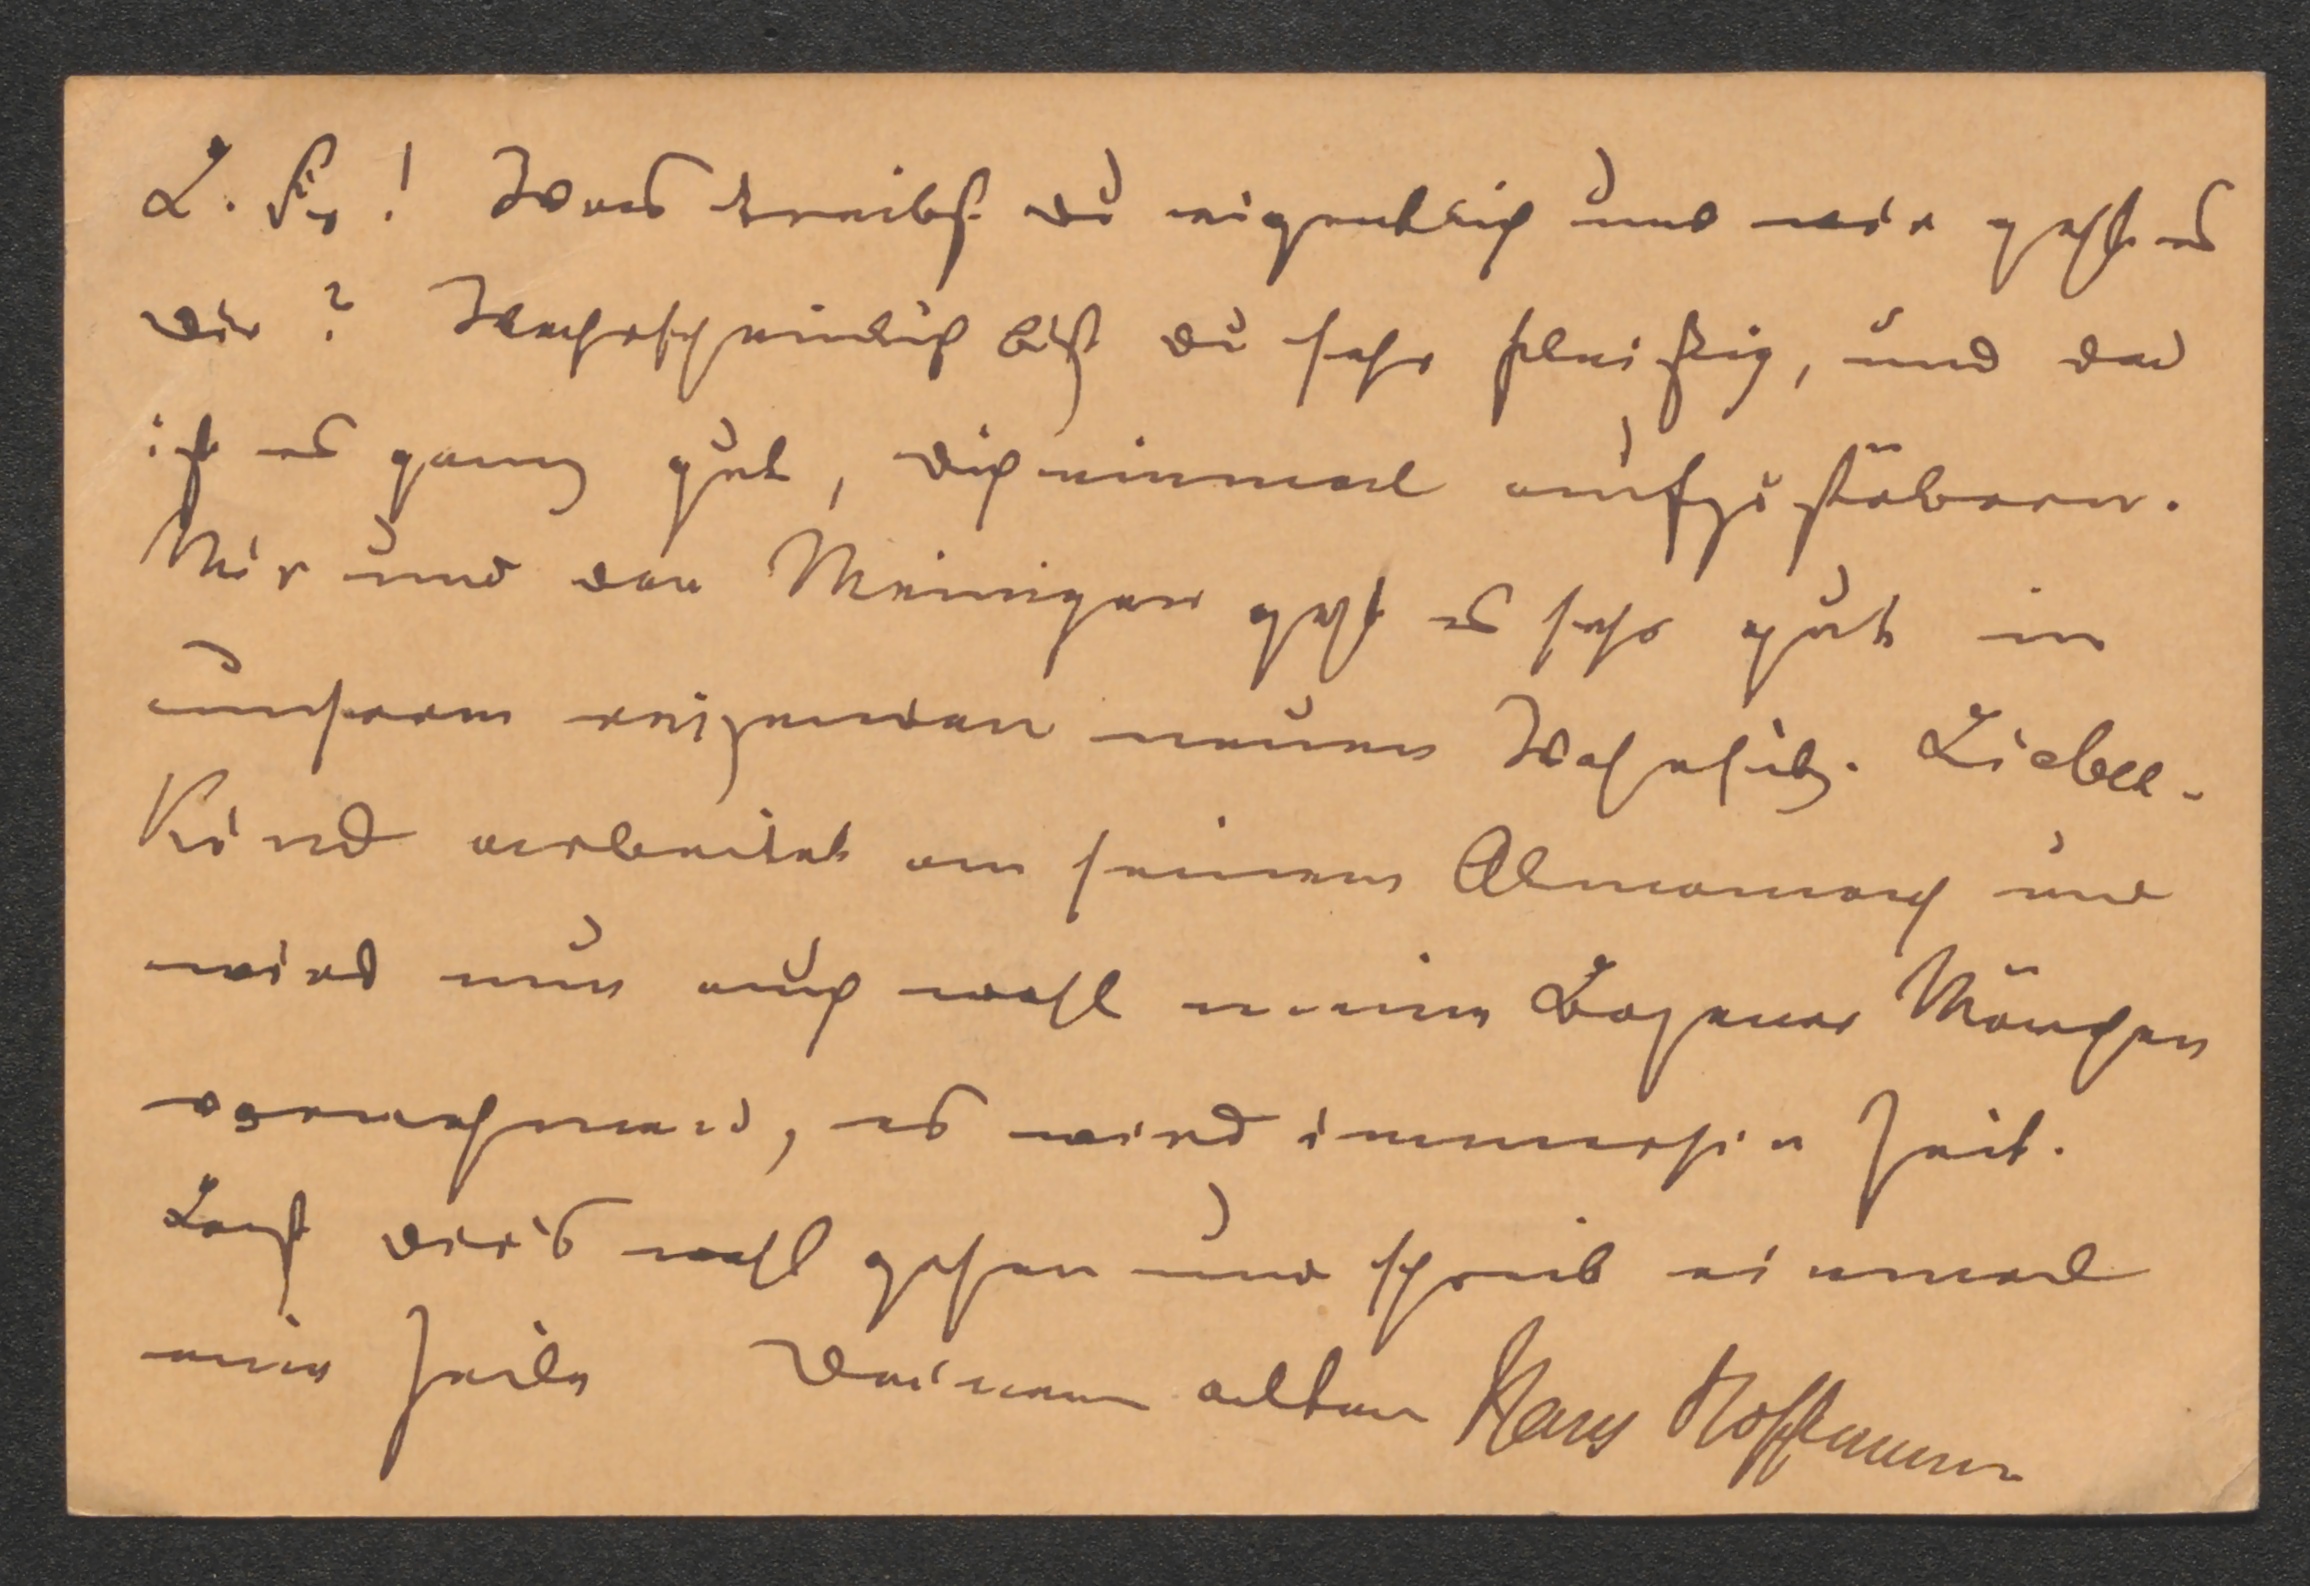 L. Fr.! Was treibst du eigentlich und wie geht es
dir? Wahrscheinlich bist du sehr fleißig, und da
ist es ganz gut, dich einmal aufzustöbern.
Mir und den Meinigen geht es sehr gut in
unserem reizenden neuen Wohnsitz. Liebes-
Kind arbeitet an seinem Almanach und
wird nun auch wohl meine Bozener Märchen
vornehmen, es wird immerhin Zeit.
Laß dir's wohl gehen und schreib einmal
eine Zeile Deinem alten Hans Hoffmann